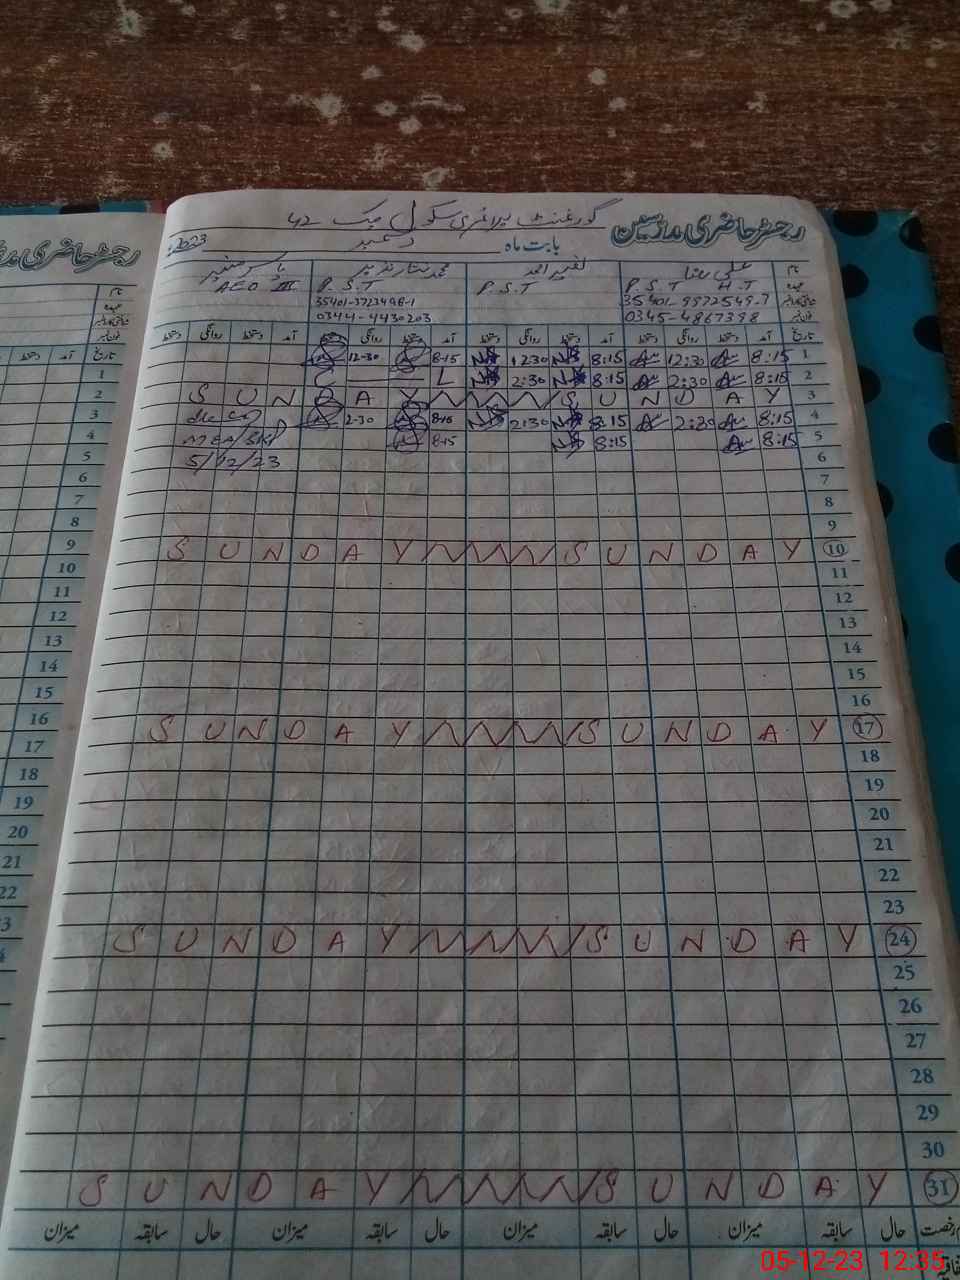 رجسٹر حاضری مدرسین گورنمنٹ پرائمری سکول چک 42
بابت ماہ دسمبر 2023ء
نام علی رضا نصیر احمد محمد ستار نذیر
عہدہ P.S.T H.T P.S.T P.S.T AEO III
35401-9572549-7 35401-3723498-1
0345-4867398 0344-4430203
تاریخ آمد دستخط روانگی دستخط آمد دستخط روانگی دستخط آمد دستخط روانگی دستخط آمد دستخط روانگی دستخط
1 8:15 12:30 8:15 12:30 8-15 12-30
2 8:15 2:30 8:15 2:30 L
3 SUNDAY SUNDAY
4 8:15 2:30 8:15 2:30 8-15 2-30
5 8:15 8:15 8-15 MEA/SKP
6 5/12/23
7
8
9
10 SUNDAY SUNDAY
11
12
13
14
15
16
17 SUNDAY SUNDAY
18
19
20
21
22
23
24 SUNDAY SUNDAY
25
26
27
28
29
30
31 SUNDAY SUNDAY
رخصت حال سابقہ میزان حال سابقہ میزان حال سابقہ میزان حال سابقہ میزان
رجسٹر حاضری
نام
تاریخ آمد دستخط
1
2
3
4
5
6
7
8
9
10
11
12
13
14
15
16
17
18
19
20
21
22
05-12-23 12:35